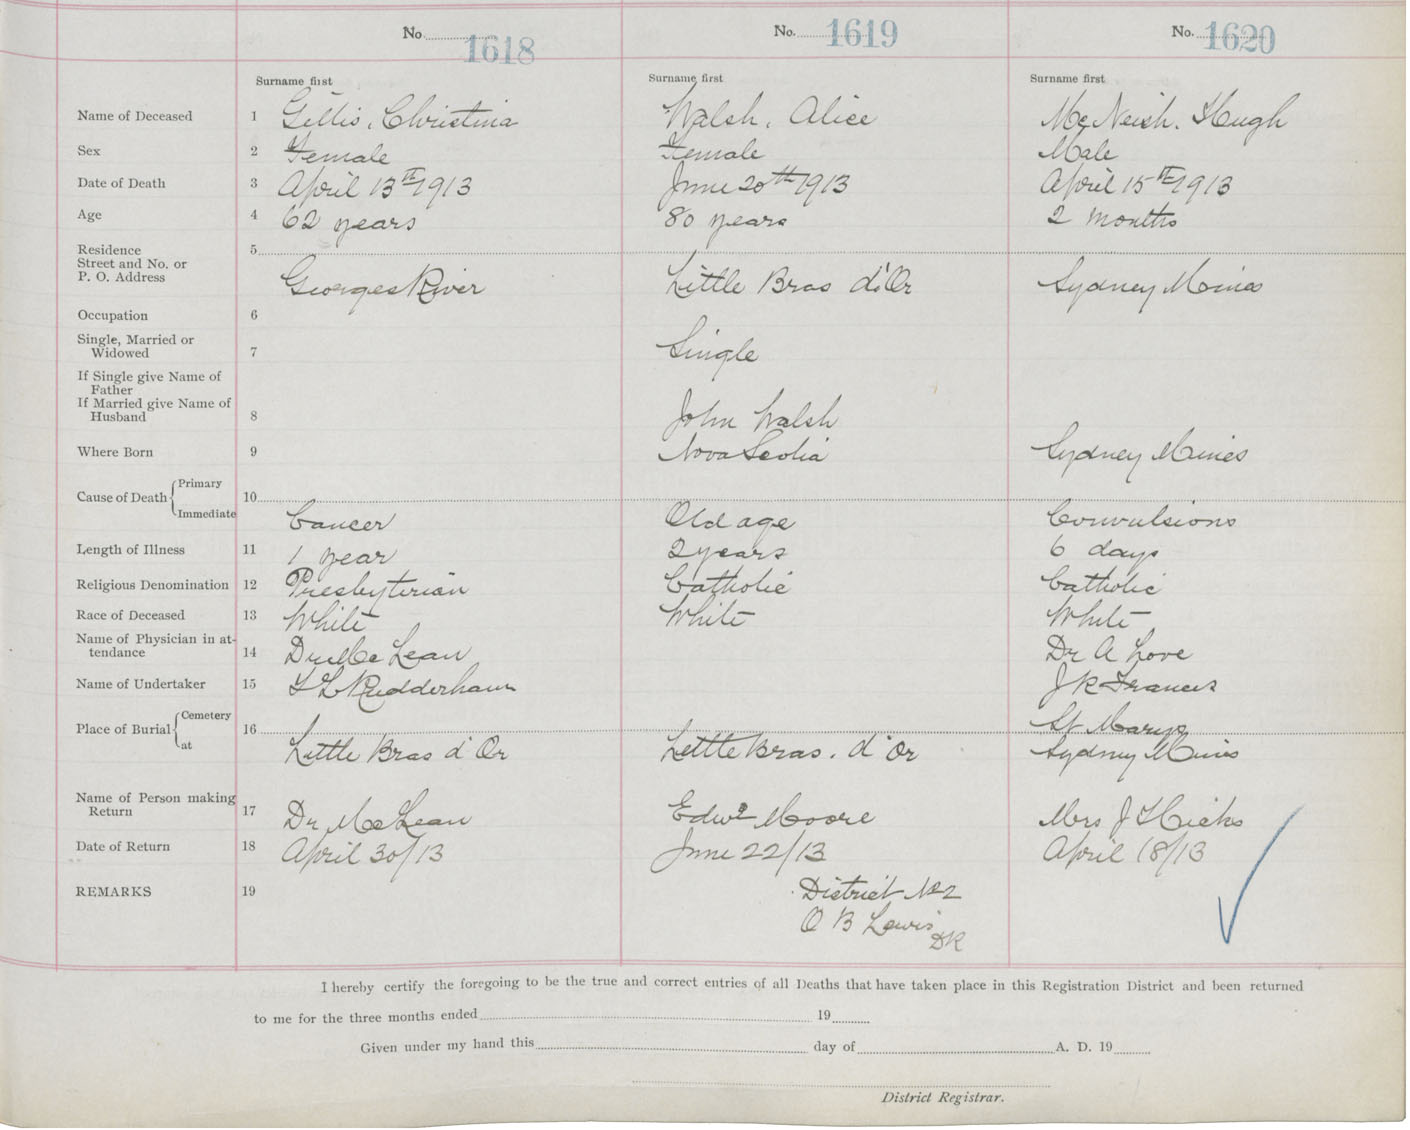 No. 1618 No. 1619 No. 1620
Surname first Surname first Surname first
Name of Deceased 1 Gillis, Christina Walsh, Alice McNeish, Hugh
Sex 2 Female Female Male
Date of Death 3 April 13th 1913 June 20th 1913 April 15th 1913
Age 4 62 years 80 years 2 months
Residence 5
Street and No. or
P. O. Address Georges River Little Bras d'Or Sydney Mines
Occupation 6
Single, Married or
Widowed 7 Single
If Single give Name of
Father
If Married give Name of
Husband 8 John Walsh
Where Born 9 Nova Scotia Sydney Mines
Primary
Cause of Death 10
Immediate Cancer Old age Convulsions
Length of Illness 11 1 year 2 years 6 days
Religious Denomination 12 Presbyterian Catholic Catholic
Race of Deceased 13 White White White
Name of Physician in at-
tendance 14 Dr McLean Dr A Love
Name of Undertaker 15 Rudderham J R Francis
Cemetery St Marys
Place of Burial 16
at Little Bras d'Or Little Bras. d'Or Sydney Mines
Name of Person making
Return 17 Dr McLean Edwd Moore Mrs J Hicks
Date of Return 18 April 30/13 June 22/13 April 18/13
REMARKS 19 District No 2
O B Lewis
DR
I hereby certify the foregoing to be the true and correct entries of all Deaths that have taken place in this Registration District and been returned
to me for the three months ended 19
Given under my hand this day of A. D. 19
District Registrar.